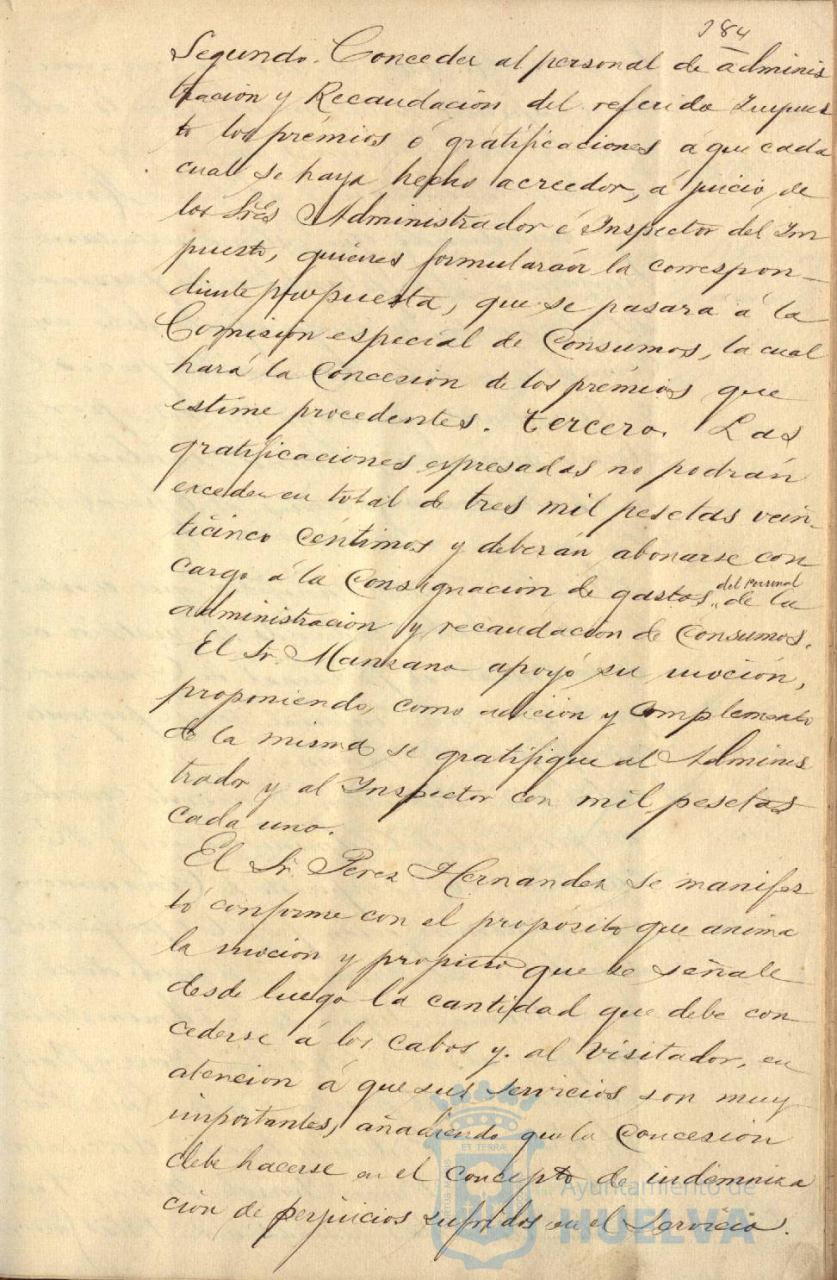 184
Segundo. Conceder al personal de adminis
tración y Recaudación del referido Impues
to los prémios ó gratificaciones á que cada
cual se haya hecho acreedor, á juicio de
los Sres Administrador é Inspector del Im
puesto, quienes formularán la correspon-
diente propuesta, que se pasará á la
Comisión especial de Consumos, la cual
hará la Concesión de los prémios que
estime procedentes. Tercero. Las
gratificaciones espresadas no podrán
exceder en total de tres mil pesetas vein-
ticinco céntimos y deberán abonarse con
cargo á la Consignación de gastos del personal de la
administracion y recaudacion de Consumos.
El Sr. Manzano apoyó su moción,
proponiendo, como adición y Complemento
de la misma se gratifique al Adminis
trador y al Inspector con mil pesetas
cada uno.
El Sr. Perez Hernandez se manifes
tó conforme con el propósito que anima
la moción y propuso que se señale
desde luego la cantidad que debe con
cederse á los cabos y al Visitador, en
atencion á que sus servicios son muy
importantes, añadiendo que la Concesión
debe hacerse en el concepto de indemniza
ción de perjuicios sufridos en el Servicio.
ET TERRA
Ayuntamiento de
HUELVA